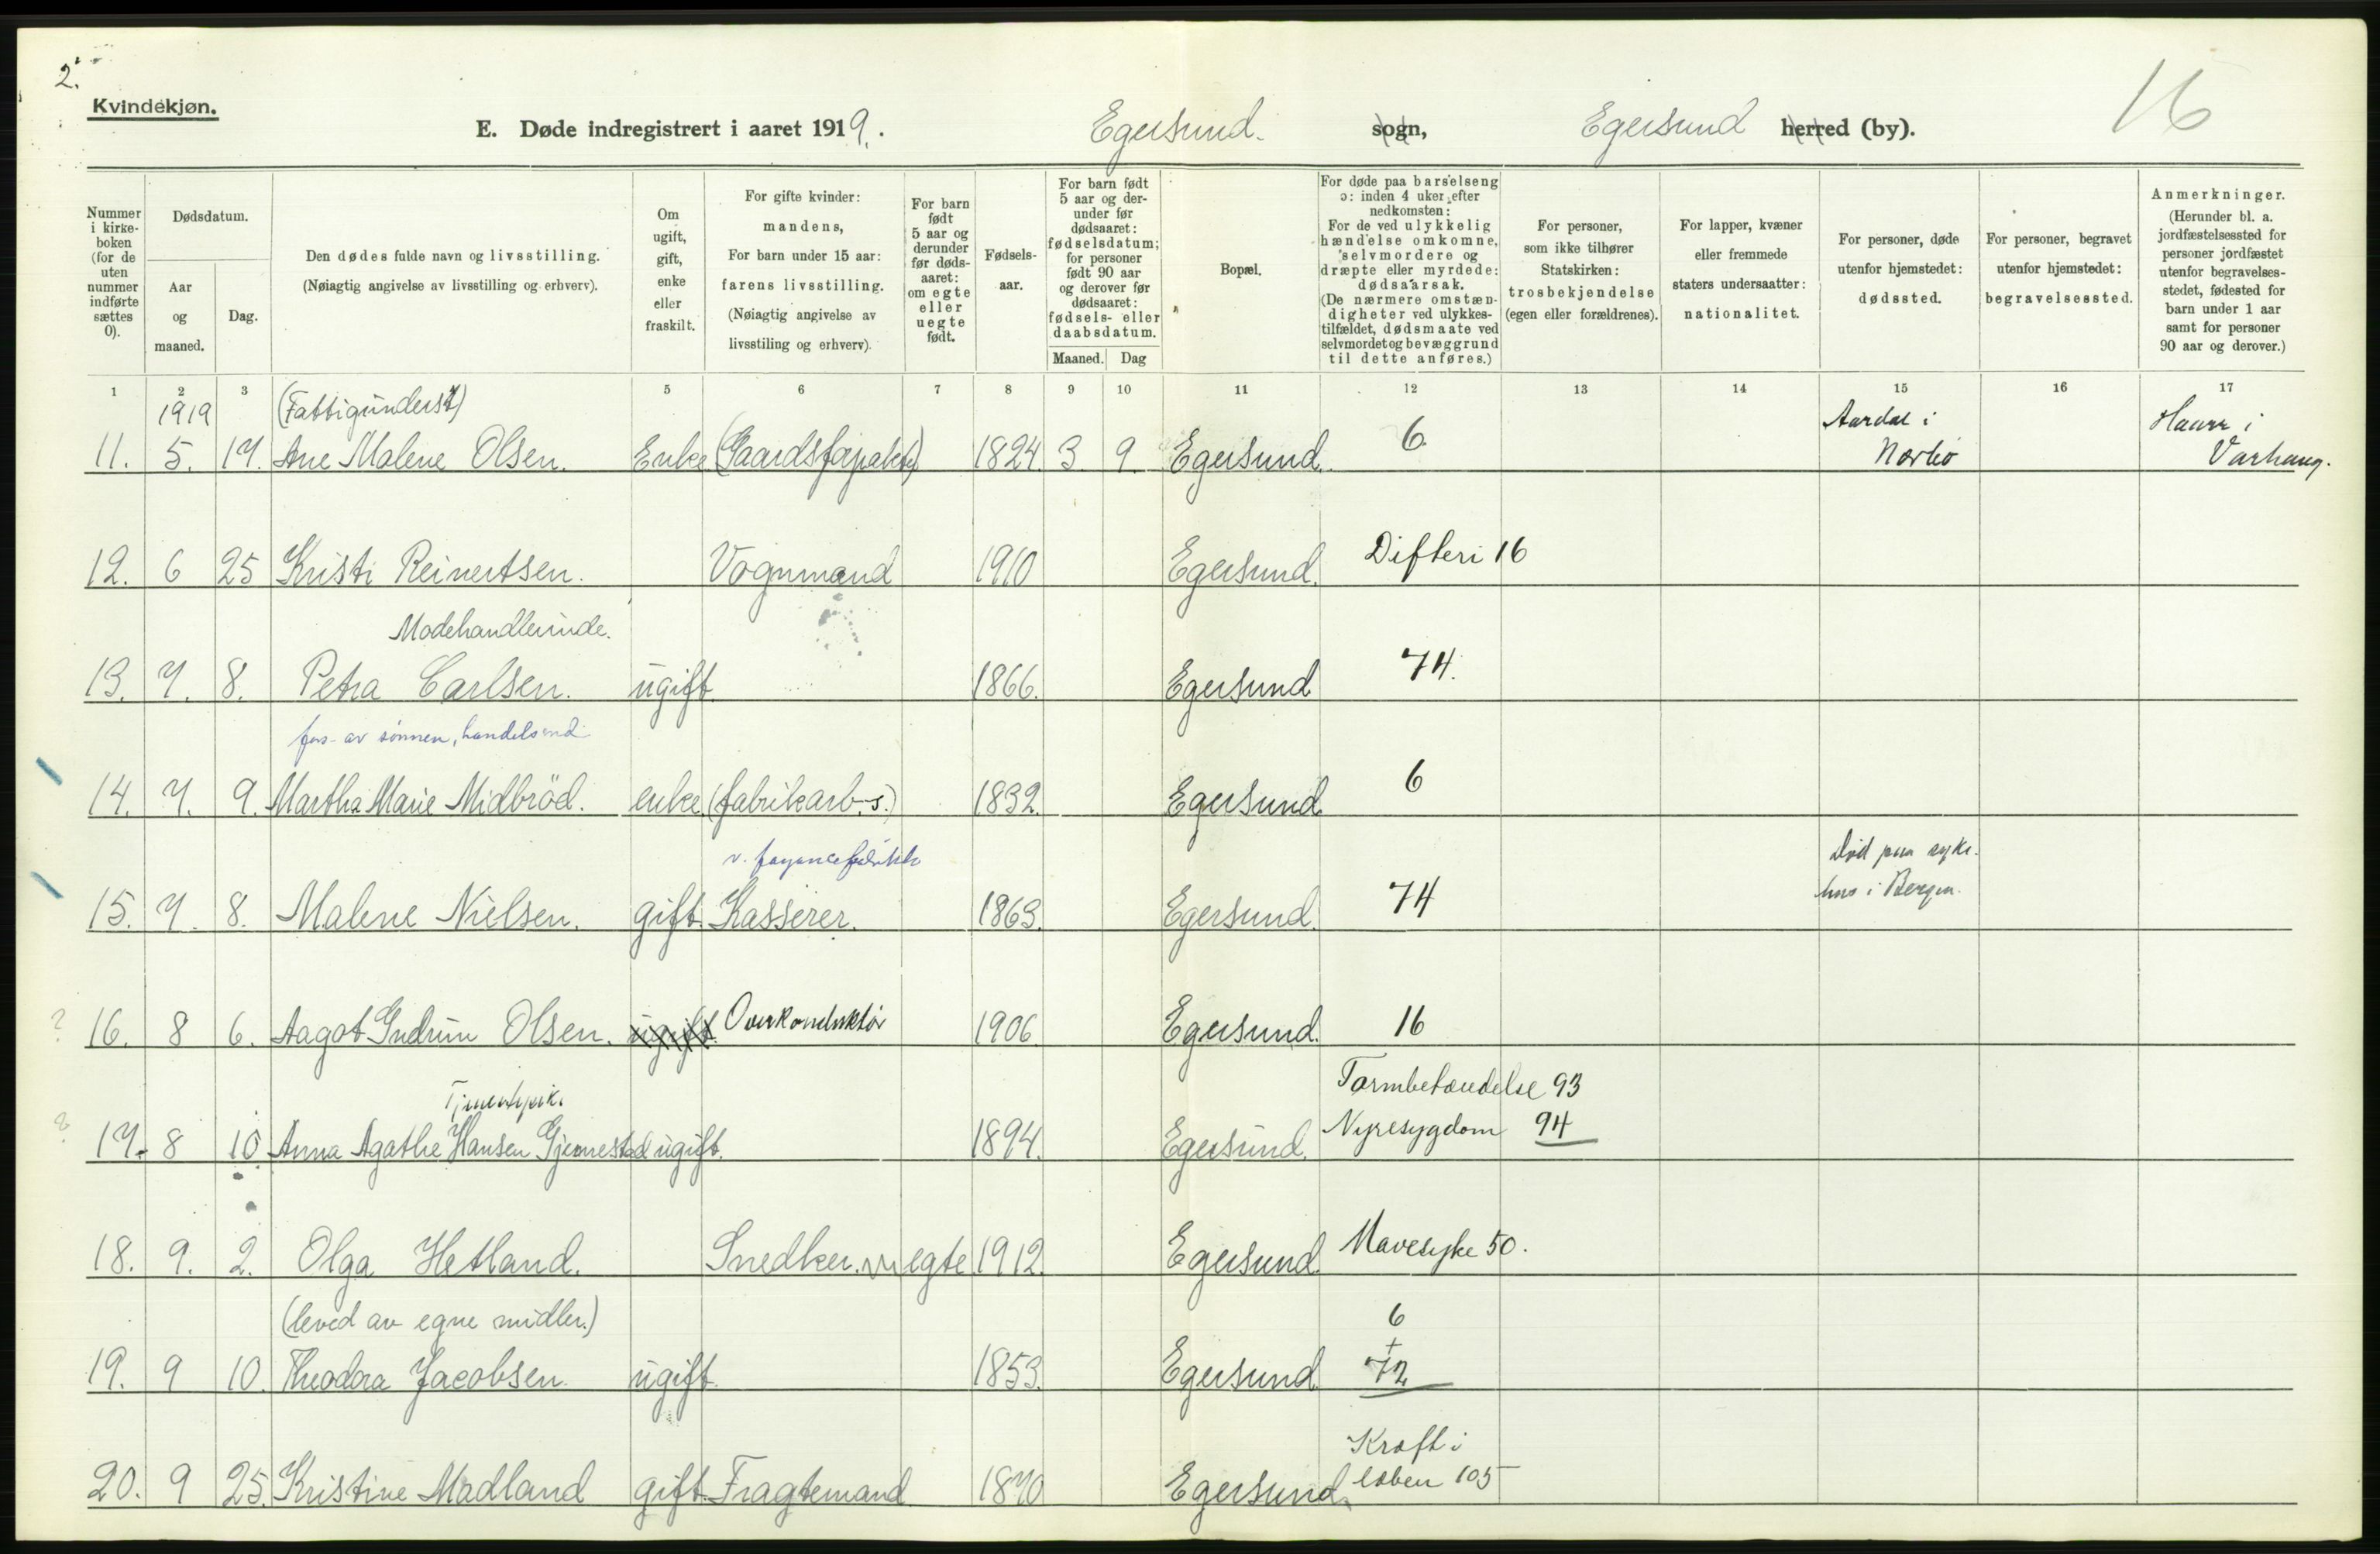 2.
Kvindekjøn.
E. Døde indregistrert i aaret 1919.
Egersund. sogn,
Egersund herred (by).
16
Nummer i kirke-boken (for de uten nummer indførte sættes 0).
Dødsdatum.
Aar og maaned.
Dag.
Den dødes fulde navn og livsstilling.
(Nøiagtig angivelse av livsstilling og erhverv).
Om ugift, gift, enke eller fraskilt.
For gifte kvinder: mandens,
For barn under 15 aar: farens livsstilling.
(Nøiagtig angivelse av livsstiling og erhverv).
For barn født 5 aar og derunder før døds-aaret: om egte eller uegte født.
Fødsels-aar.
For barn født 5 aar og der-under før dødsaaret: fødselsdatum; for personer født 90 aar og derover før dødsaaret: fødsels- eller daabsdatum.
Maaned. Dag
Bopæl.
For døde paa barselseng ɔ: inden 4 uker efter nedkomsten:
For de ved ulykkelig hændelse omkomne, selvmordere og dræpte eller myrdede: dødsaarsak.
(De nærmere omstæn-digheter ved ulykkes-tilfældet, dødsmaate ved selvmordet og bevæggrund til dette anføres.)
For personer, som ikke tilhører Statskirken: trosbekjendelse (egen eller forældrenes).
For lapper, kvæner eller fremmede staters undersaatter: nationalitet.
For personer, døde utenfor hjemstedet: dødssted.
For personer, begravet utenfor hjemstedet: begravelsessted.
Anmerkninger.
(Herunder bl. a. jordfæstelsessted for personer jordfæstet utenfor begravelses-stedet, fødested for barn under 1 aar samt for personer 90 aar og derover.)
1 2 3 5 6 7 8 9 10 11 12 13 14 15 16 17
1919 (Fattigunderst) Aardal i Haar i
11. 5. 17. Ane Malene Olsen. Enke (Gaardsforpakter) 1824. 3. 9. Egersund. 6. Nærbø Varhaug.
12. 6 25 Kristi Reinertsen. Vognmand 1910 Egersund. Difteri 16
Modehandlerinde.
13. 7. 8. Petra Carlsen. ugift 1866. Egersund 74.
fors. av sønnen, handelsmd.
14. 7. 9. Martha Marie Midbröd. enke. (fabrikarb-s.) 1832. Egersund 6
v. fayancefabrikk Død paa syke-
15. 7. 8. Malene Nielsen. gift. Kasserer. 1863. Egersund. 74 hus i Bergen.
? 16. 8 6. Aagot Gudrun Olsen. ugift. Overkonduktør 1906. Egersund. 16
Tjenestepik. Tarmbetændelse 93
? 17. 8 10. Anna Agathe Hansen Gjermestad ugift. 1894. Egersund. Nyresygdom 94
18. 9. 2. Olga Hetland. Snedker. egte 1912. Egersund. Mavesyke 50.
(leved av egne midler.) 6
19. 9 10. Theodora Jacobsen. ugift. 1853. Egersund + 72
Kræft i
20. 9 25. Kristine Madland gift. Fragtemand 1870 Egersund. leben 105